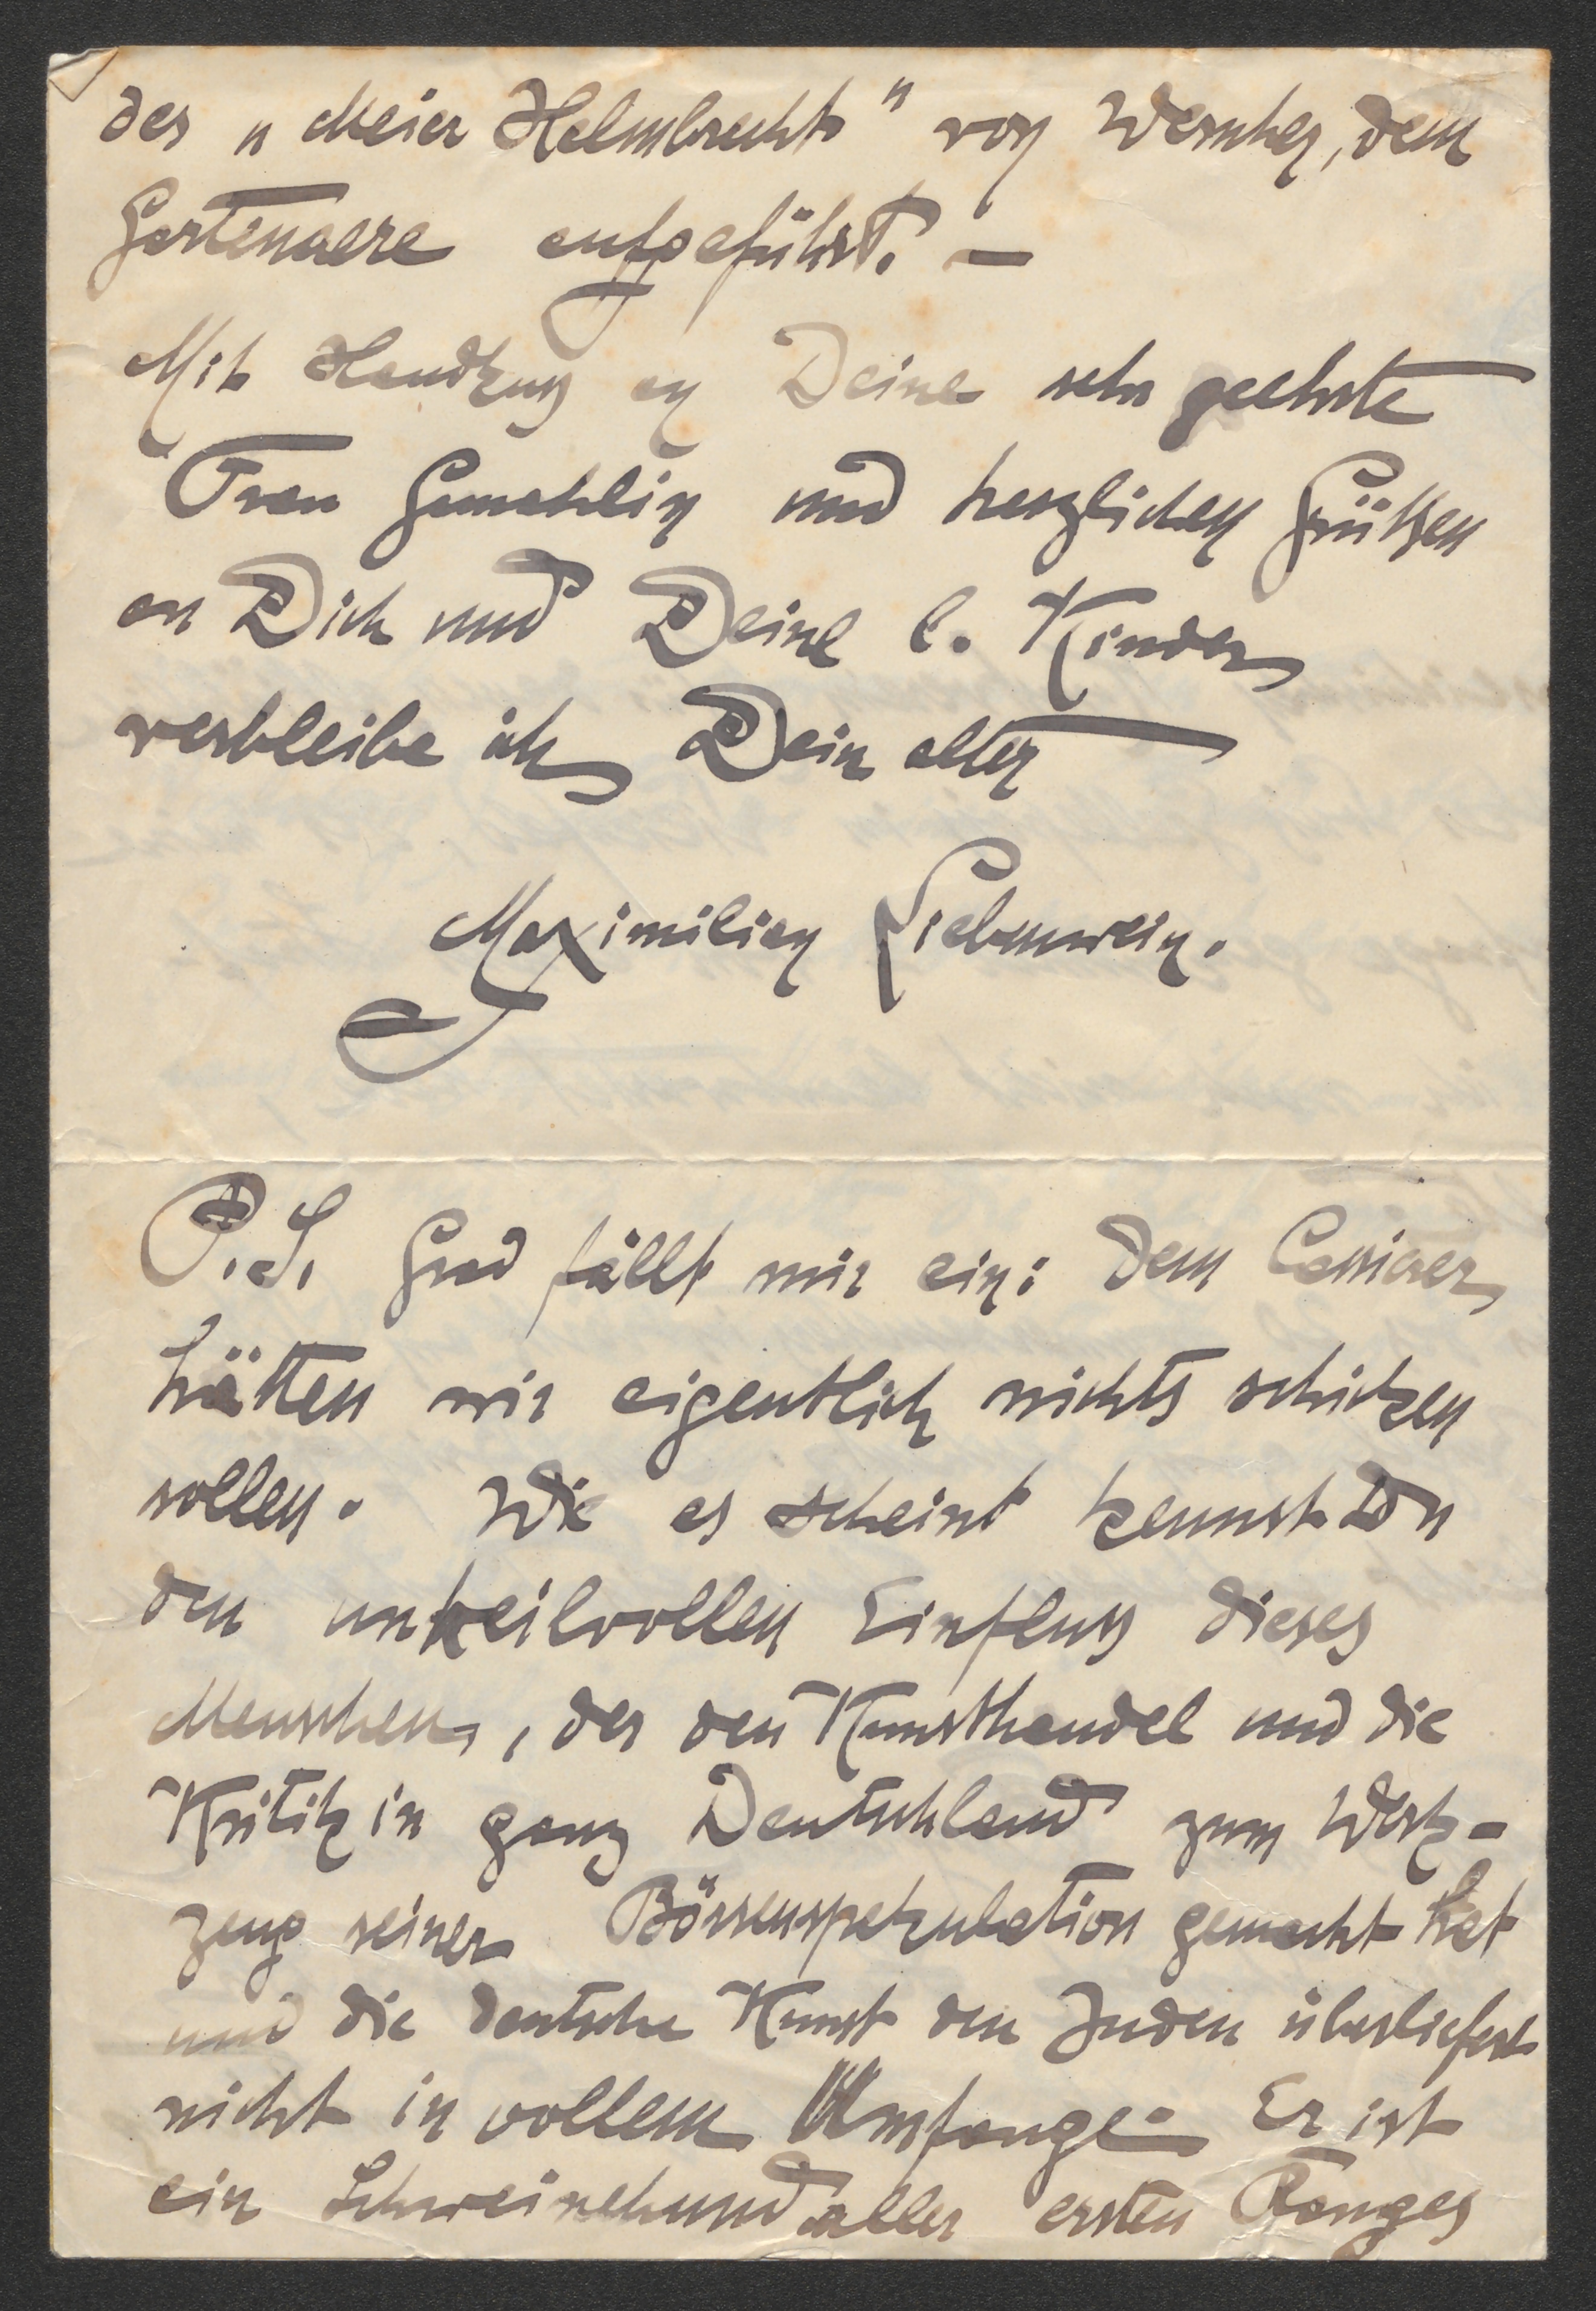 des „Meier Helmbrecht" von Wernher, dem
Gartenaere aufgeführt. —
Mit Handkuss an Deine sehr geehrte
Frau Gemahlin und herzlichen Grüßen
an Dich und Deine l. Kinder
verbleibe ich Dein alter
Maximilian Liebenwein.
P.S. Grad fällt mir ein: Dem Cassirer
hätten wir eigentlich nichts schicken
sollen. Wie es scheint kennst Du
den unheilvollen Einfluss dieses
Menschen, der den Kunsthandel und die
Kritik in ganz Deutschland zum Werk-
zeug seiner Börsenspekulation gemacht hat
und die deutsche Kunst den Juden überliefert
nicht in vollem Umfange. Er ist
ein Schweinehund aller ersten Ranges